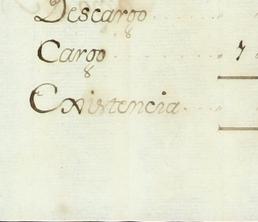 Descargo
Cargo 7
Existencia